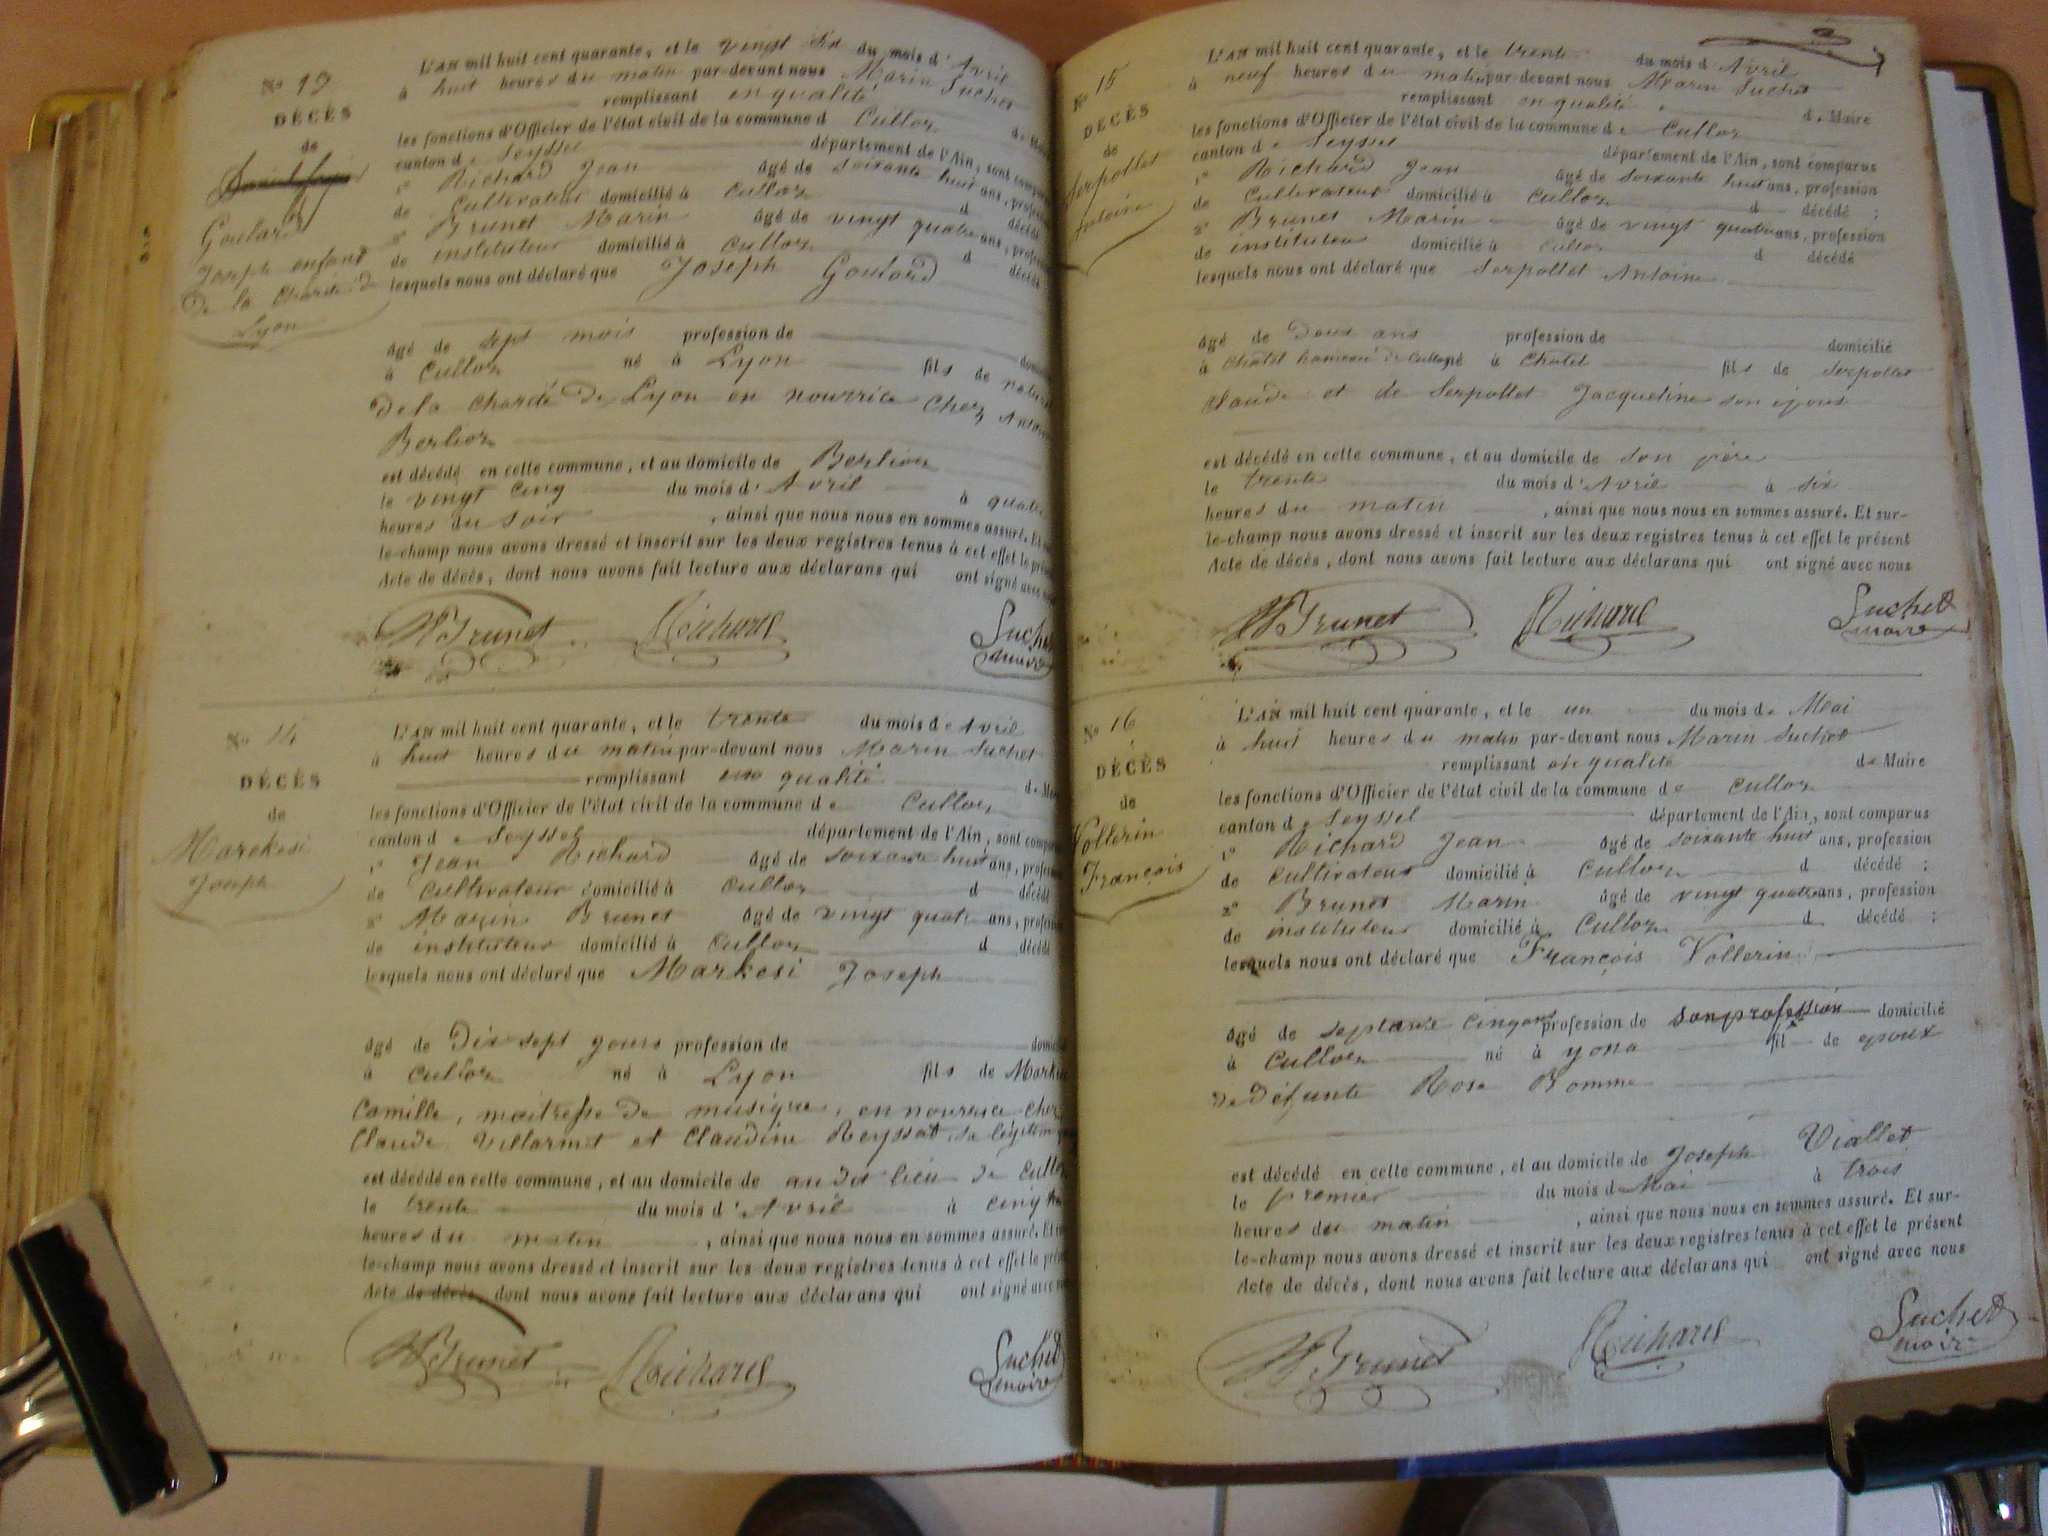 No 13
DÉCÈS
de
Goulard
Joseph enfant
de la charité de
Lyon
L'AN mil huit cent quarante, et le vingt six du mois d'Avril
à huit heures du matin par-devant nous Marin Suchet
remplissant en qualité de Maire
les fonctions d'Officier de l'état civil de la commune d Culloz
canton de Seyssel département de l'Ain, sont comparus
1° Richard Jean âgé de soixante huit ans, profession
de Cultivateur domicilié à Culloz d décédé
2° Brunet Marin âgé de vingt quatre ans, profession
de instituteur domicilié à Culloz d décédé
lesquels nous ont déclaré que Joseph Goulard
âgé de sept mois profession de domicilié
à Culloz né à Lyon fils de
de la charité de Lyon en nourrice chez Antoine
Berlioz
est décédé en cette commune, et au domicile de Berlioz
le vingt cinq du mois d'Avril à quatre
heures du soir , ainsi que nous nous en sommes assuré. Et
le-champ nous avons dressé et inscrit sur les deux registres tenus à cet effet le
Acte de décès, dont nous avons fait lecture aux déclarans qui ont signé avec
M Brunet Richard Suchet
maire
No 14
DÉCÈS
de
Marckesi
Joseph
L'AN mil huit cent quarante, et le trente du mois de Avril
à huit heures du matin par-devant nous Marin Suchet
remplissant en qualité de
les fonctions d'Officier de l'état civil de la commune de Culloz
canton de Seyssel département de l'Ain, sont
1° Jean Richard âgé de soixante huit ans,
de Cultivateur domicilié à Culloz d décédé
2° Marin Brunet âgé de vingt quatre ans,
de instituteur domicilié à Culloz d décédé
lesquels nous ont déclaré que Markesi Joseph
âgé de Dix sept jours profession de
à Culloz né à Lyon fils de
Camille, maitresse de musique, en nourrice chez
Claude Villermet et Claudine Reyssat sa légitime
est décédé en cette commune, et au domicile de au dit lieu de Culloz
le trente du mois d'Avril à cinq
heures du matin , ainsi que nous nous en sommes assuré. Et
le-champ nous avons dressé et inscrit sur les deux registres tenus à cet effet le
Acte de décès, dont nous avons fait lecture aux déclarans qui ont signé avec
M Brunet Richard Suchet
maire
No 15
DÉCÈS
de
Serpollet
Antoine
L'AN mil huit cent quarante, et le trente du mois d'Avril
à neuf heures du matin par-devant nous Marin Suchet
remplissant en qualité de Maire
les fonctions d'Officier de l'état civil de la commune de Culloz
canton de Seyssel département de l'Ain, sont comparus
1° Richard Jean âgé de soixante huit ans, profession
de Cultivateur domicilié à Culloz d décédé ;
2° Brunet Marin âgé de vingt quatre ans, profession
de instituteur domicilié à Culloz d décédé
lesquels nous ont déclaré que Serpollet Antoine
âgé de Deux ans profession de domicilié
à Chatel hameau de Culloz né à Chatel fils de Serpollet
Claude et de Serpollet Jacqueline son épouse
est décédé en cette commune, et au domicile de son père
le trente du mois d'Avril à six
heures du matin , ainsi que nous nous en sommes assuré. Et sur-
le-champ nous avons dressé et inscrit sur les deux registres tenus à cet effet le présent
Acte de décès, dont nous avons fait lecture aux déclarans qui ont signé avec nous
M Brunet Richard Suchet
maire
No 16
DÉCÈS
de
Vollerin
François
L'AN mil huit cent quarante, et le un du mois de Mai
à huit heures du matin par-devant nous Marin Suchet
remplissant en qualité de Maire
les fonctions d'Officier de l'état civil de la commune de Culloz
canton de Seyssel département de l'Ain, sont comparus
1° Richard Jean âgé de soixante huit ans, profession
de Cultivateur domicilié à Culloz d décédé ;
2° Brunet Marin âgé de vingt quatre ans, profession
de instituteur domicilié à Culloz d décédé ;
lesquels nous ont déclaré que François Vollerin
âgé de septante cinq ans profession de sans profession domicilié
à Culloz né à yona fil de epoux
de défunte Rose Bomme
est décédé en cette commune, et au domicile de Joseph Viallet
le premier du mois d Mai à trois
heures du matin , ainsi que nous nous en sommes assuré. Et sur-
le-champ nous avons dressé et inscrit sur les deux registres tenus à cet effet le présent
Acte de décès, dont nous avons fait lecture aux déclarans qui ont signé avec nous
M Brunet Richard Suchet
maire